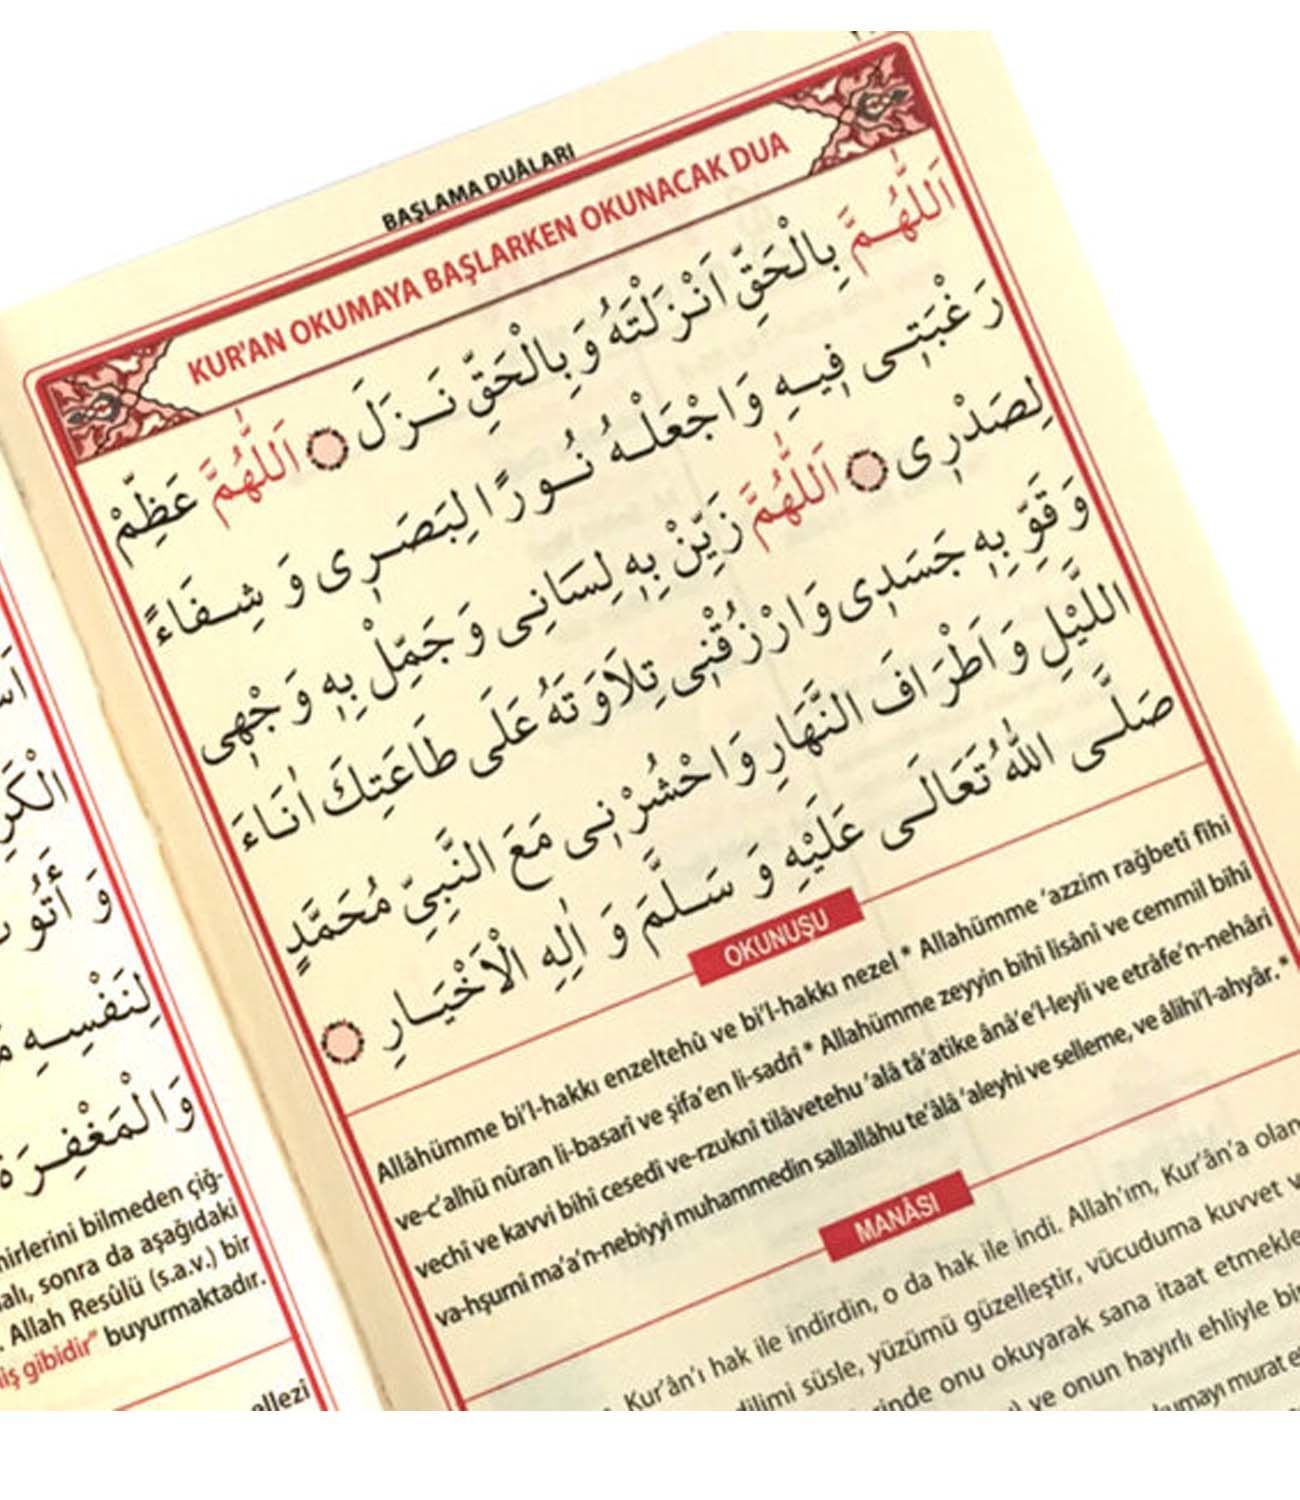 BAŞLAMA DUÂLARI
KUR'AN OKUMAYA BAŞLARKEN OKUNACAK DUA
اَللّٰهُمَّ بِالْحَقِّ اَنْزَلْتَهُ وَبِالْحَقِّ نَزَلَ ۞ اَللّٰهُمَّ عَظِّمْ
رَغْبَتِى فِيهِ وَاجْعَلْهُ نُورًا لِبَصَرِى وَ شِفَاءً
لِصَدْرِى ۞ اَللّٰهُمَّ زَيِّنْ بِهِ لِسَانِى وَ جَمِّلْ بِهِ وَجْهِى
وَقَوِّ بِهِ جَسَدِى وَارْزُقْنِى تِلَاوَتَهُ عَلَى طَاعَتِكَ اٰنَاءَ
اللَّيْلِ وَاَطْرَافَ النَّهَارِ وَاحْشُرْنِى مَعَ النَّبِيِّ مُحَمَّدٍ
صَلَّى اللّٰهُ تَعَالَى عَلَيْهِ وَ سَلَّمَ وَ اٰلِهِ الْاَخْيَارِ ۞
OKUNUŞU
Allâhümme bi'l-hakkı enzeltehû ve bi'l-hakkı nezel * Allahümme 'azzim rağbetî fîhi
ve-c'alhü nûran li-basarî ve şifa'en li-sadrî * Allahümme zeyyin bihî lisânî ve cemmil bihî
vechî ve kavvi bihî cesedî ve-rzuknî tilâvetehu 'alâ tâ'atike ânâ'e'l-leyli ve etrâfe'n-nehâri
va-hşurnî ma'a'n-nebiyyi muhammedin sallallâhu te'âlâ 'aleyhi ve selleme, ve âlihî'l-ahyâr. *
MANÂSI
Kur'ân'ı hak ile indirdin, o da hak ile indi. Allah'ım, Kur'ân'a olan
dilimi süsle, yüzümü güzelleştir, vücuduma kuvvet
onu okuyarak sana itaat etmekle
ve onun hayırlı ehliyle
murat
الْكَرِ
وَ
لِنَفْسِهِ
وَالْمَغْفِرَةَ
bilmeden çiğ-
sonra da aşağıdaki
Allah Resûlü (s.a.v.) bir
gibidir" buyurmaktadır.